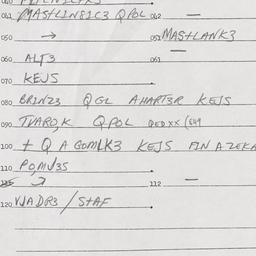 041 MASTLIN8IC3 QPOL 042 —
050 → 052 MASTLANK3
060 ALT3 061 —
070 KEJS
080 BRINZ3 QGL AHART3R KEJS
090 TVARO,K QPOL
100 + Q A GOMLK3 KEJS FIN
110 PO,MV3S
112 —
120 VJADR3 / STAF